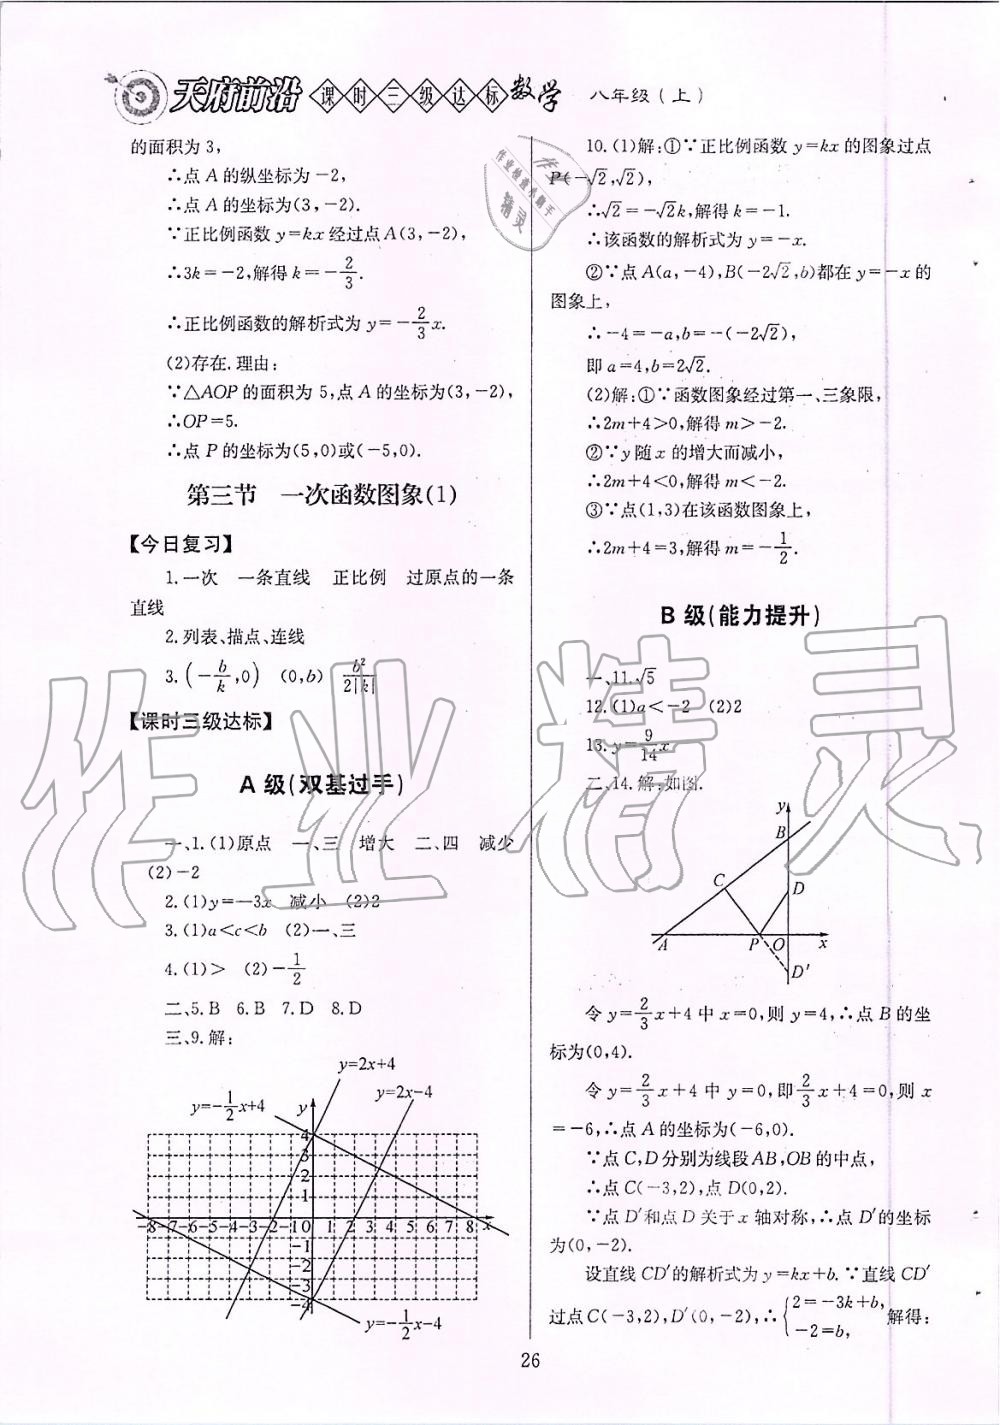 天府前沿 课时三级达标 数学 八年级(上)
的面积为3,
∴点A的纵坐标为-2,
∴点A的坐标为(3,-2).
∵正比例函数y=kx经过点A(3,-2),
∴3k=-2,解得k=-2/3.
∴正比例函数的解析式为y=-2/3x.
(2)存在.理由:
∵△AOP的面积为5,点A的坐标为(3,-2),
∴OP=5.
∴点P的坐标为(5,0)或(-5,0).
第三节 一次函数图象(1)
【今日复习】
1.一次 一条直线 正比例 过原点的一条
直线
2.列表、描点、连线
3.(-b/k,0) (0,b) b²/2|k|
【课时三级达标】
A级(双基过手)
一、1.(1)原点 一、三 增大 二、四 减少
(2)-2
2.(1)y=-3x 减小 (2)2
3.(1)a<c<b (2)一、三
4.(1)> (2)-1/2
二、5.B 6.B 7.D 8.D
三、9.解:
y=2x+4
y=2x-4
y=-1/2x+4
y
4
3
2
1
-8-7-6-5-4-3-2-1O 1 2 3 4 5 6 7 8 x
-1
-2
-3
-4
y=-1/2x-4
10.(1)解:①∵正比例函数y=kx的图象过点
P(-√2,√2),
∴√2=-√2k,解得k=-1.
∴该函数的解析式为y=-x.
②∵点A(a,-4),B(-2√2,b)都在y=-x的
图象上,
∴-4=-a,b=-(-2√2),
即a=4,b=2√2.
(2)解:①∵函数图象经过第一、三象限,
∴2m+4>0,解得m>-2.
②∵y随x的增大而减小,
∴2m+4<0,解得m<-2.
③∵点(1,3)在该函数图象上,
∴2m+4=3,解得m=-1/2.
B级(能力提升)
一、11.√5
12.(1)a<-2 (2)2
13.y=9/14x
二、14.解:如图.
y
B
C
D
A P O x
D′
令y=2/3x+4中x=0,则y=4,∴点B的坐
标为(0,4).
令y=2/3x+4中y=0,即2/3x+4=0,则x
=-6,∴点A的坐标为(-6,0).
∵点C,D分别为线段AB,OB的中点,
∴点C(-3,2),点D(0,2).
∵点D′和点D关于x轴对称,∴点D′的坐标
为(0,-2).
设直线CD′的解析式为y=kx+b.∵直线CD′
过点C(-3,2),D′(0,-2),∴{2=-3k+b, -2=b, 解得:
26
作业精灵